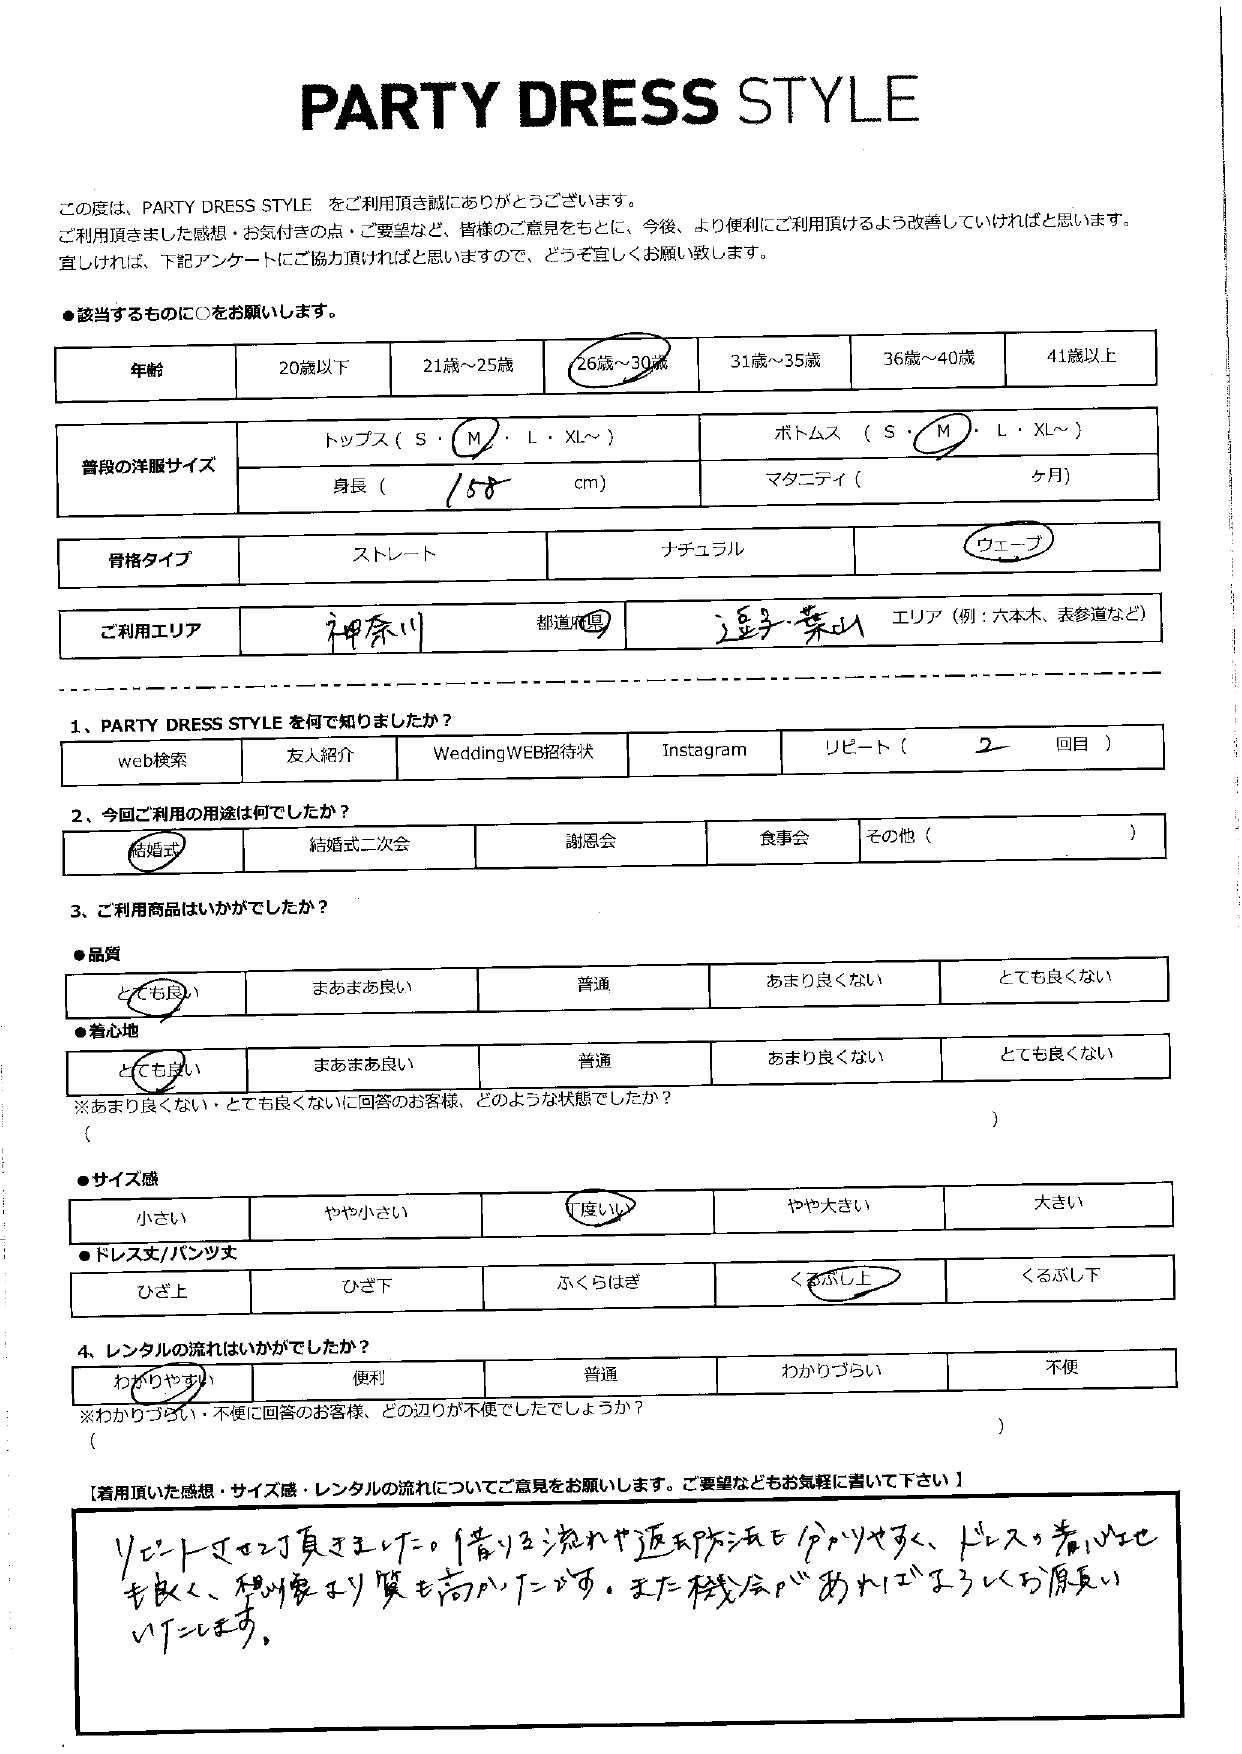 PARTY DRESS STYLE
この度は、PARTY DRESS STYLE をご利用頂き誠にありがとうございます。
ご利用頂きました感想・お気付きの点・ご要望など、皆様のご意見をもとに、今後、より便利にご利用頂けるよう改善していければと思います。
宜しければ、下記アンケートにご協力頂ければと思いますので、どうぞ宜しくお願い致します。
●該当するものに○をお願いします。
年齢 20歳以下 21歳～25歳 26歳～30歳 31歳～35歳 36歳～40歳 41歳以上
普段の洋服サイズ
トップス ( S ・ M ・ L ・ XL～ ) ボトムス ( S ・ M ・ L ・ XL～ )
身長 ( 158 cm) マタニティ ( ヶ月)
骨格タイプ ストレート ナチュラル ウェーブ
ご利用エリア 神奈川 都道府県 逗子・葉山 エリア（例：六本木、表参道など）
1、PARTY DRESS STYLE を何で知りましたか？
web検索 友人紹介 WeddingWEB招待状 Instagram リピート ( 2 回目 )
2、今回ご利用の用途は何でしたか？
結婚式 結婚式二次会 謝恩会 食事会 その他 ( )
3、ご利用商品はいかがでしたか？
●品質
とても良い まあまあ良い 普通 あまり良くない とても良くない
●着心地
とても良い まあまあ良い 普通 あまり良くない とても良くない
※あまり良くない・とても良くないに回答のお客様、どのような状態でしたか？
( )
●サイズ感
小さい やや小さい 丁度いい やや大きい 大きい
●ドレス丈/パンツ丈
ひざ上 ひざ下 ふくらはぎ くるぶし上 くるぶし下
4、レンタルの流れはいかがでしたか？
わかりやすい 便利 普通 わかりづらい 不便
※わかりづらい・不便に回答のお客様、どの辺りが不便でしたでしょうか？
( )
【着用頂いた感想・サイズ感・レンタルの流れについてご意見をお願いします。ご要望などもお気軽に書いて下さい 】
リピートさせて頂きました。借りる流れや返却方法も分かりやすく、ドレスの着心地
も良く、想像より質も高かったです。また機会があればよろしくお願い
いたします。